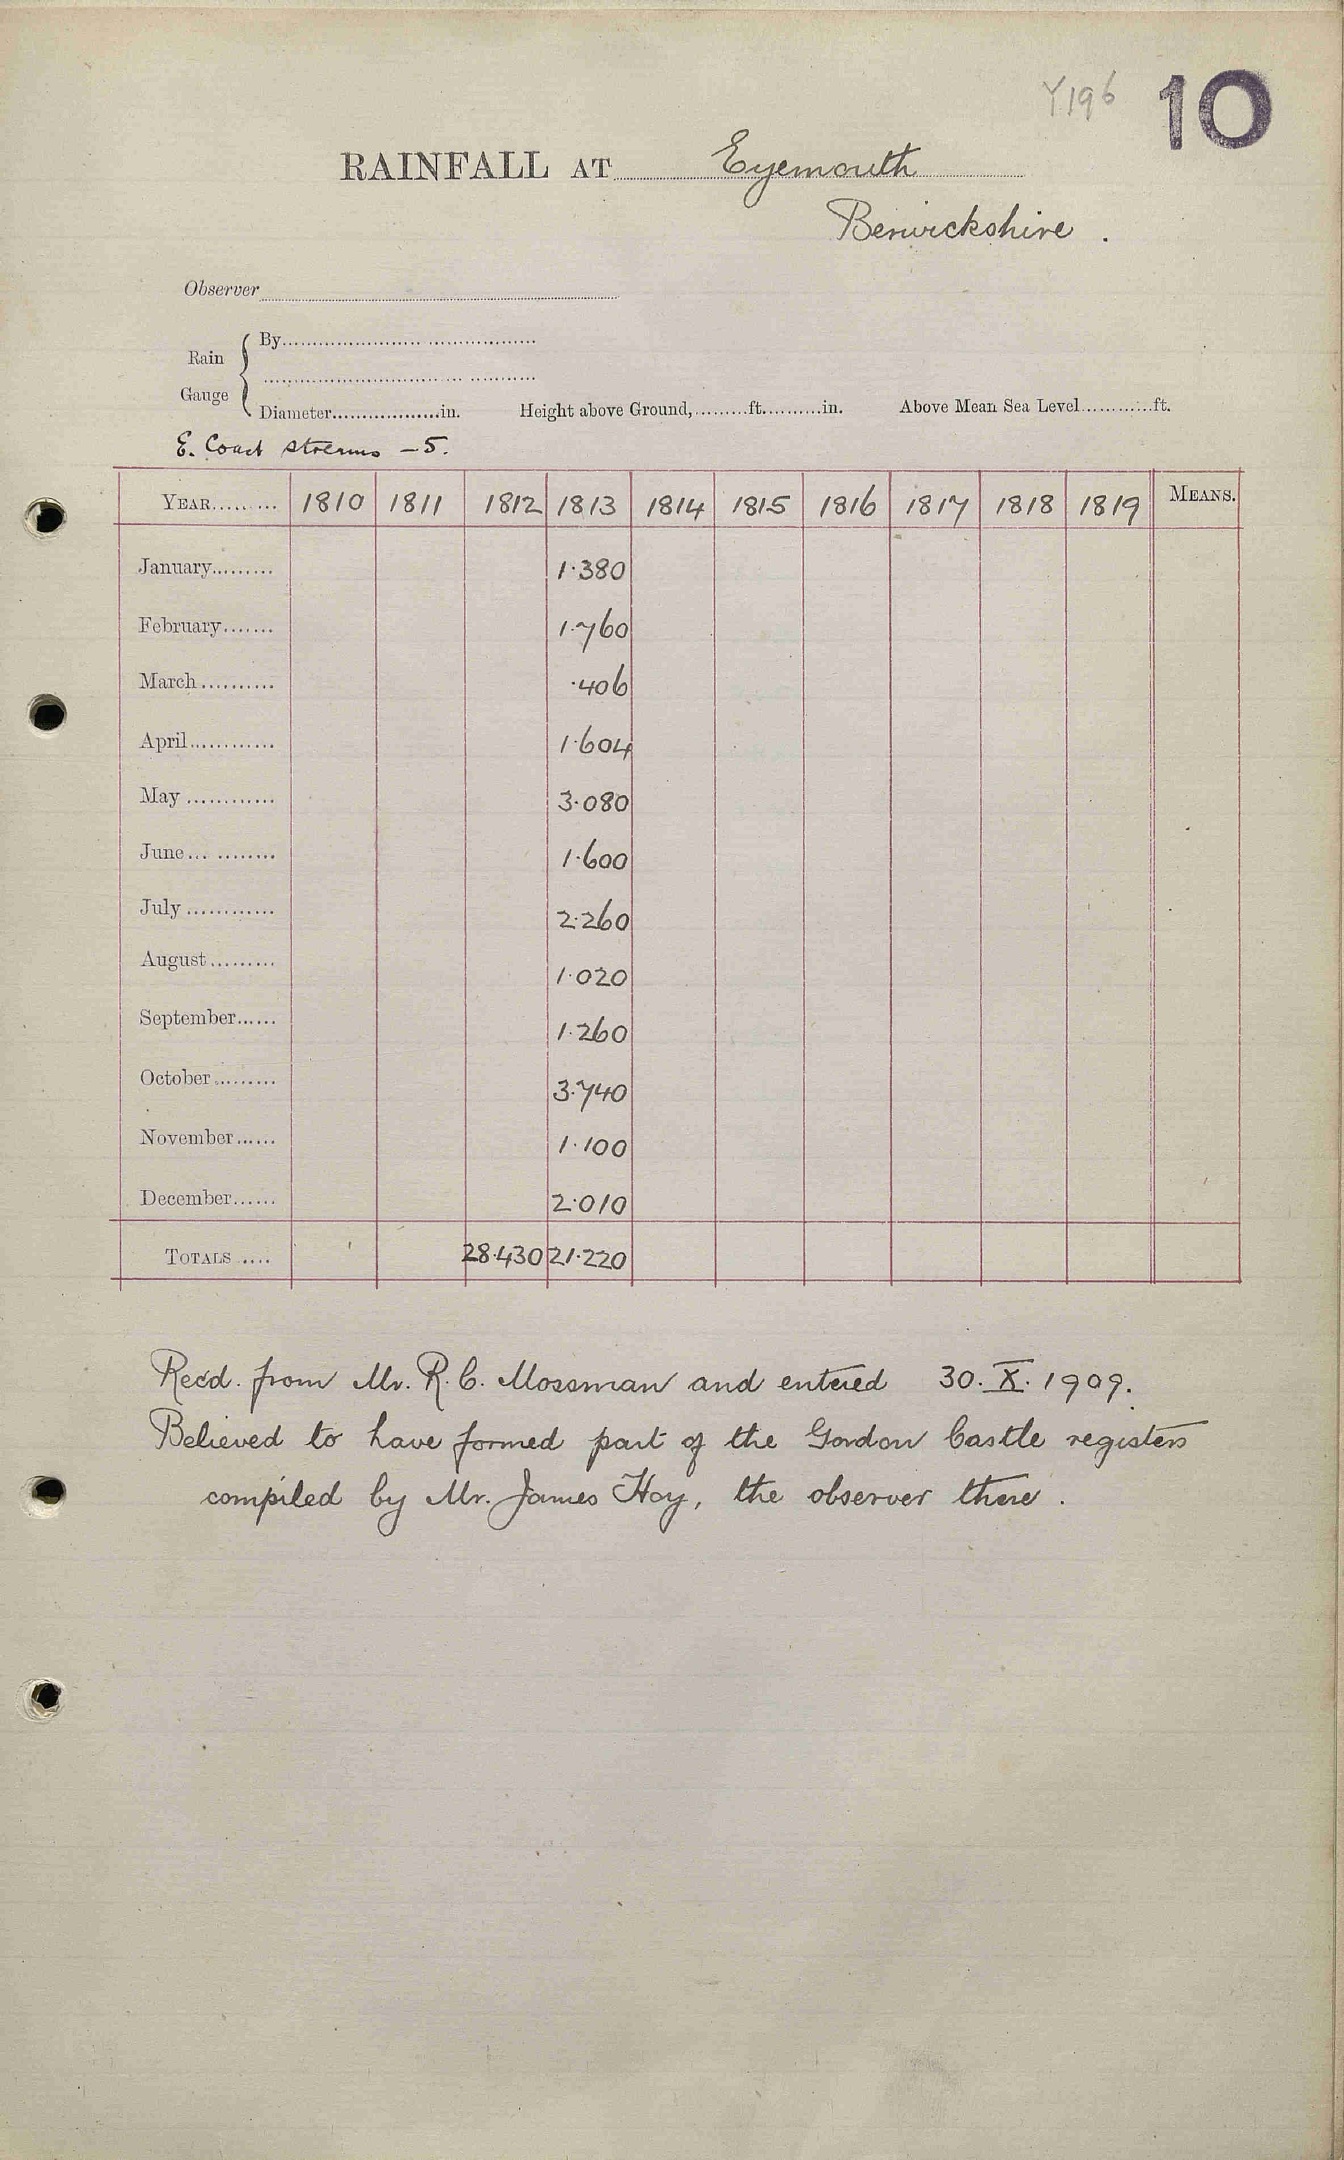 Y196 10
RAINFALL AT Eyemouth
Berwickshire.
Observer
Rain Gauge { By
Diameter in. Height above Ground, ft. in. Above Mean Sea Level ft.
E. Coast streams – 5.
YEAR 1810 1811 1812 1813 1814 1815 1816 1817 1818 1819 MEANS.
January 1·380
February 1·760
March ·406
April 1·604
May 3·080
June 1·600
July 2·260
August 1·020
September 1·260
October 3·740
November 1·100
December 2·010
TOTALS 28·430 21·220
Recd. from Mr. R. C. Mossman and entered 30. X. 1909.
Believed to have formed part of the Gordon Castle registers
compiled by Mr. James Hoy, the observer there.